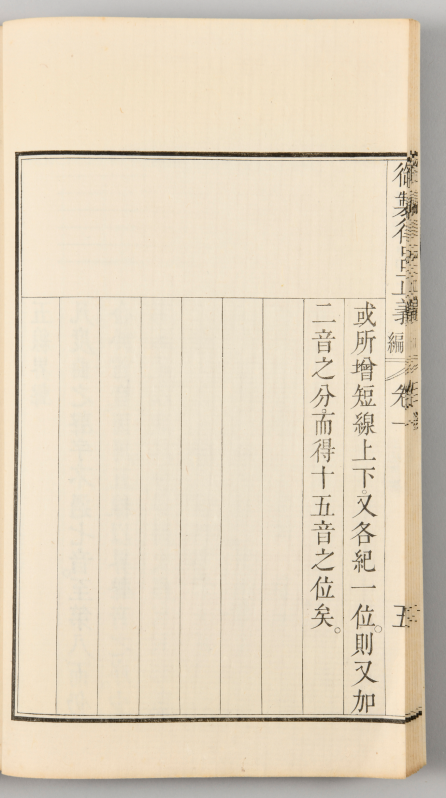 御製律呂正義
編
卷一
五
或所增短線上下。又各紀一位。則又加
二音之分。而得十五音之位矣。